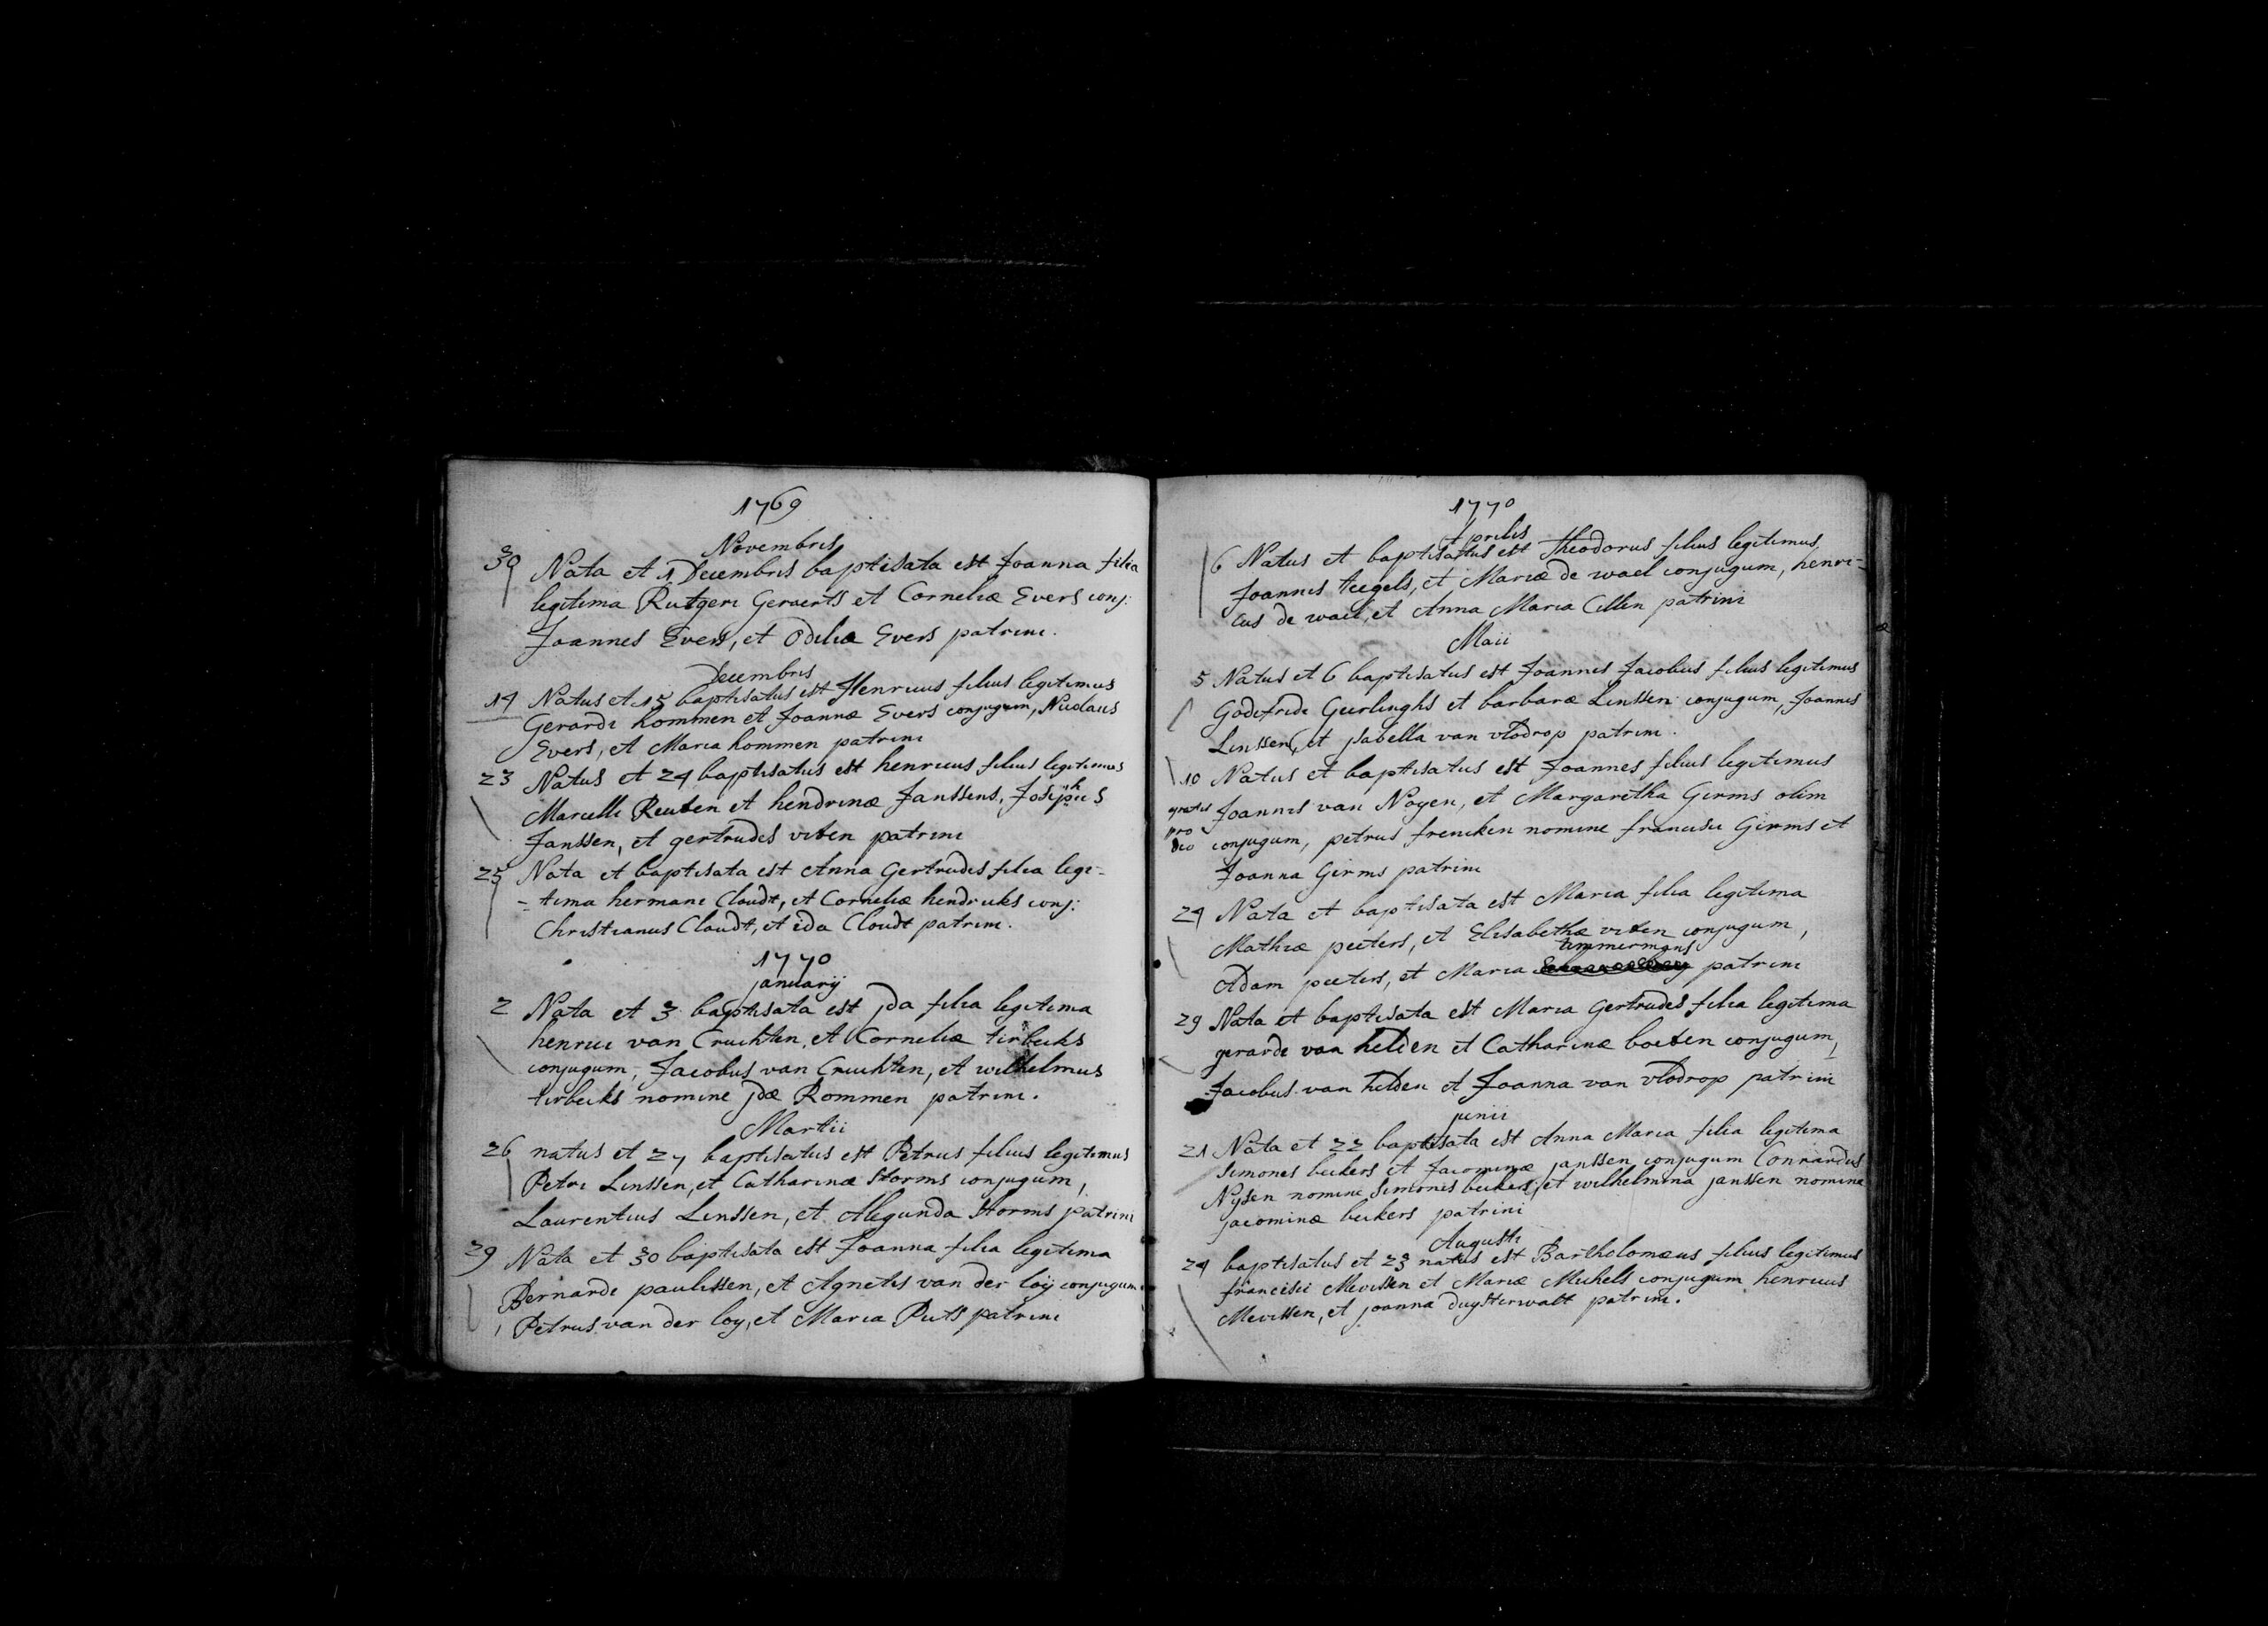 1769
Novembris
30 Nata et 1 Decembris baptisata est Joanna filia
legitima Rutgeri Geraerts et Corneliæ Evers conj:
Joannes Evers, et Odilia Evers patrini.
Decembris
14 Natus et 15 baptisatus est Henricus filius legitimus
Gerardi hommen et Joannæ Evers conjugum, Nicolaus
Evers, et Maria hommen patrini
23 Natus et 24 baptisatus est henricus filius legitimus
Marcelli Reuten et hendrinæ Janssens, Josephus
Janssen, et gertrudis viten patrini
25 Nata et baptisata est Anna Gertrudis filia legi=
=tima hermani Cloudt, et Corneliæ hendricks conj:
Christianus Cloudt, et ida Cloudt patrini.
1770
januarij
2 Nata et 3 baptisata est jda filia legitima
henrici van Cruchten, et Corneliæ tirbecks
conjugum, Jacobus van Cruchten, et wilhelmus
tirbecks nomine jdæ Rommen patrini.
Martii
26 natus et 27 baptisatus est Petrus filius legitimus
Petri Linssen, et Catharinæ Storms conjugum,
Laurentius Linssen, et Alegunda Storms patrini
29 Nata et 30 baptisata est Joanna filia legitima
Bernardi paulissen, et Agnetis van der loij conjugum
Petrus van der loy, et Maria Puts patrini
1770
Aprilis
6 Natus et baptisatus est Theodorus filius legitimus
Joannis teegels, et Mariæ de wael conjugum, henri=
cus de wael, et Anna Maria Cillen patrini
Maii
5 Natus et 6 baptisatus est Joannes Jacobus filius legitimus
Godefridi Geerlinghs et barbaræ Linssen conjugum, Joannes
Linssen, et jsabella van vlodrop patrini.
10 Natus et baptisatus est Joannes filius legitimus
gratis Joannis van Noyen, et Margaretha Girms olim
pro
deo conjugum, petrus frencken nomine francisci Girms et
Joanna Girms patrini
24 Nata et baptisata est Maria filia legitima
Mathiæ peeters, et Elisabethæ viten conjugum,
timmermans
Adam peeters, et Maria patrini
29 Nata et baptisata est Maria Gertrudis filia legitima
gerardi van helden et Catharinæ boeten conjugum,
Jacobus van helden et Joanna van vlodrop patrini
junii
21 Nata et 22 baptisata est Anna Maria filia legitima
Simones beckers et Jacominæ janssen conjugum Conrardus
Nijsen nomine Simonis beckers, et wilhelmina janssen nomine
jacominæ beckers patrini
Augusti
24 baptisatus et 23 natus est Bartholomæus filius legitimus
francisci Mevissen et Mariæ Michels conjugum henricus
Mevissen, et joanna duysterwalt patrini.